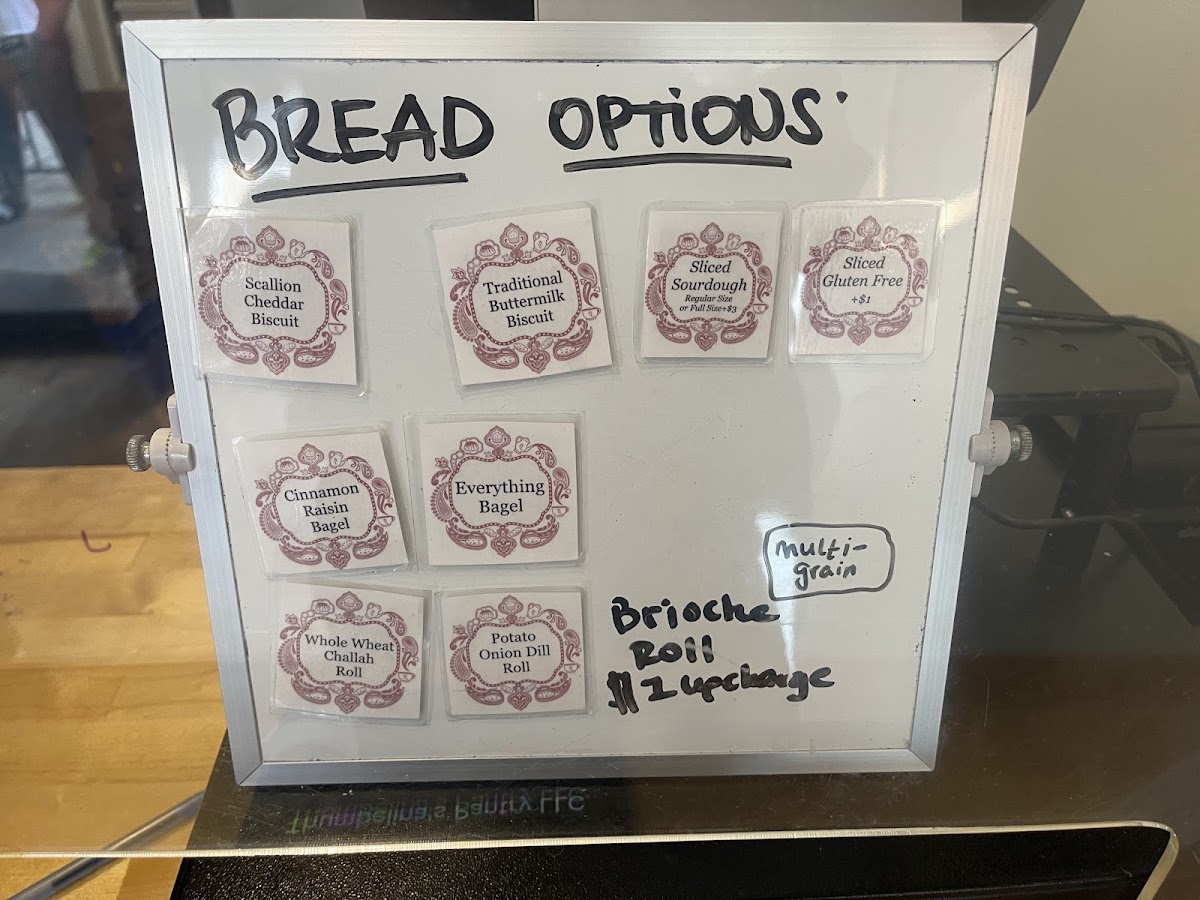 BREAD OPTIONS:
Scallion
Cheddar
Biscuit
Traditional
Buttermilk
Biscuit
Sliced
Sourdough
Regular Size
or Full Size+$3
Sliced
Gluten Free
+$1
Cinnamon
Raisin
Bagel
Everything
Bagel
multi-
grain
Whole Wheat
Challah
Roll
Potato
Onion Dill
Roll
Brioche
Roll
$1 upcharge
Thumbelina's Pantry LLC